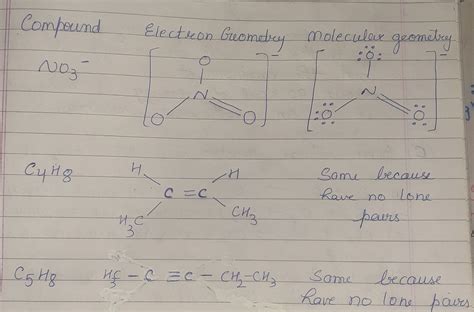 Compound Electron Geometry Molecular geometry
NO₃⁻ [O N O O]⁻ [:Ö: N :Ö: Ö:]⁻
C₄H₈ H H
C = C Same because
H₃C CH₃ have no lone
pairs
C₅H₈ H₃C - C ≡ C - CH₂-CH₃ Same because
have no lone pairs